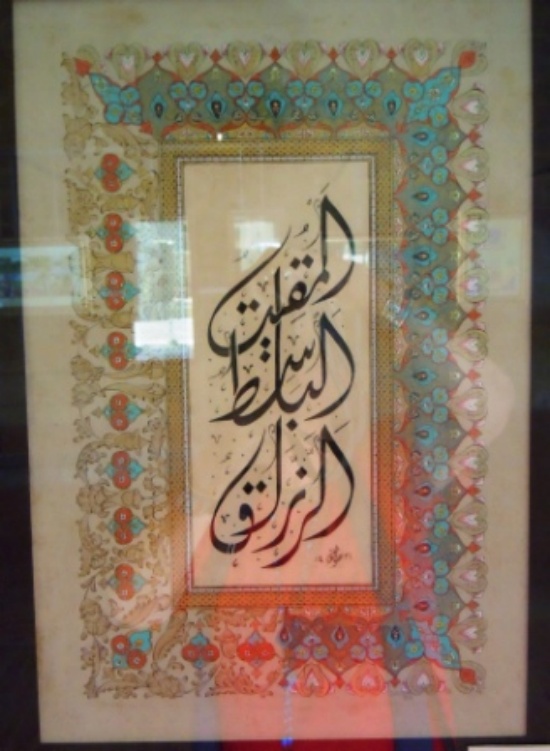 المقيت
الباسط
الرزاق